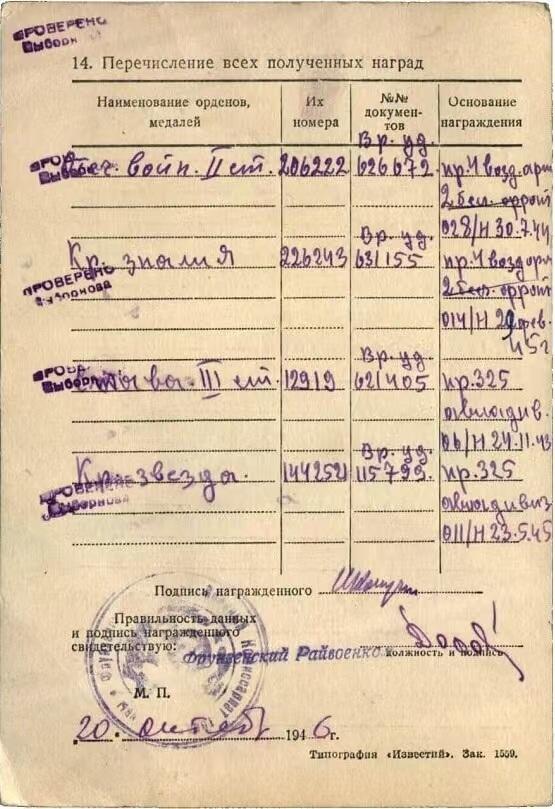 ПРОВЕРЕНО
Выборн
14. Перечисление всех полученных наград
Наименование орденов, медалей
Их номера
№№ докумен-тов
Основание награждения
Вр. уд.
Отеч. войн. II ст. 206222 626672. пр. 4 возд. арм
2 бел. фронт
028/Н 30.7.44
Вр. уд.
Кр. знамя 226243 631155 пр. 4 возд арм
2 бел. фронт
ПРОВЕРЕНО
Выборнова
014/Н 2 фев.
45г
Вр. уд.
Слава III ст. 12919 621405 пр. 325
авиадив.
Вр. уд.
06/Н 24.11.43
Кр. звезда. 1442521 115799. пр. 325
ПРОВЕРЕНО
Выборнова
авиадивиз
011/Н 23.5.45
Подпись награжденного
Правильность данных
и подпись награжденного
свидетельствую: Фрунзенский Райвоенком
должность и подпись
М. П.
20 октября 1946 г.
Типография «Известий». Зак. 1559.